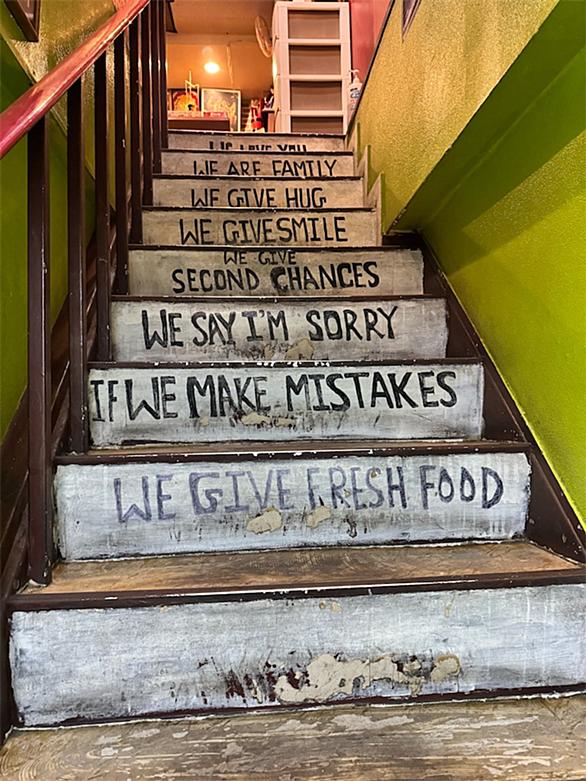 WE LOVE YOU
WE ARE FAMILY
WE GIVE HUG
WE GIVE SMILE
WE GIVE
SECOND CHANCES
WE SAY I'M SORRY
IF WE MAKE MISTAKES
WE GIVE FRESH FOOD